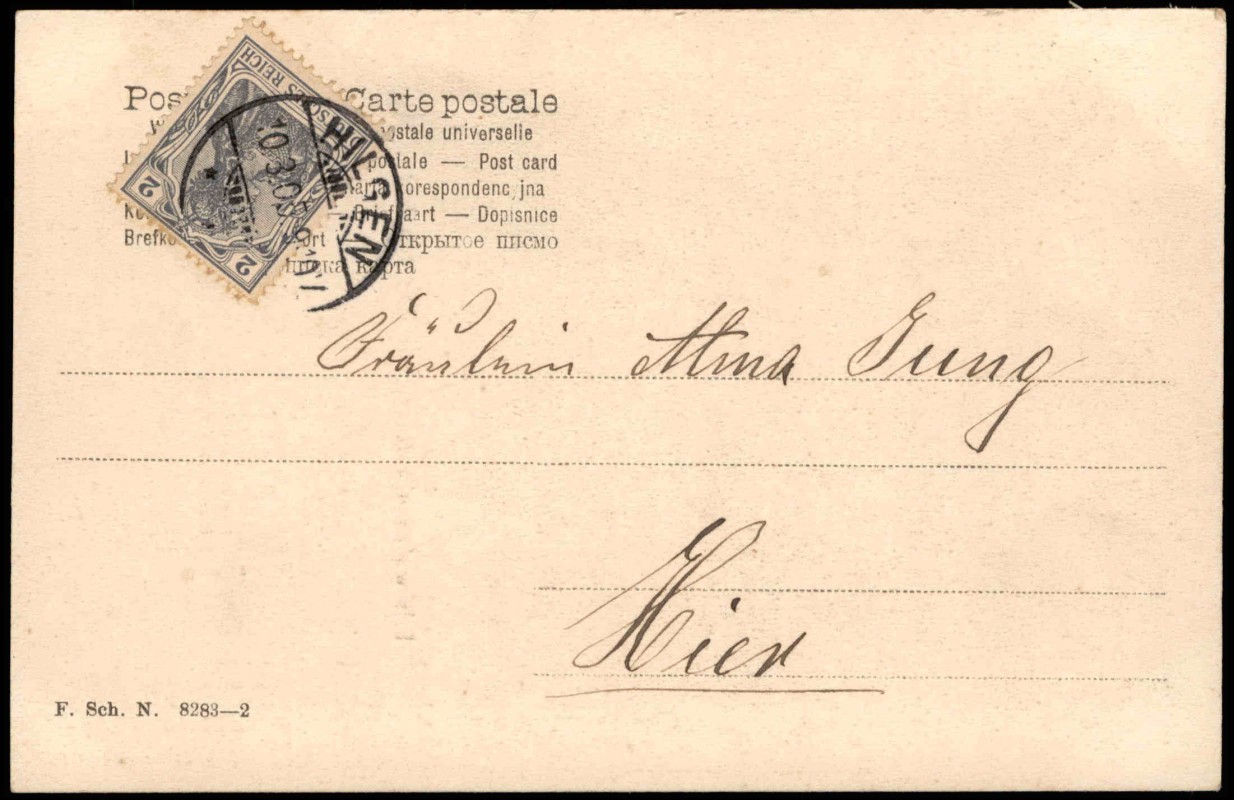 Pos Carte postale
postale universelle
postale — Post card
Karta korespondencyjna
Ko Briefkaart — Dopisnice
Brefko ort открытое письмо
писка карта
SCHES REICH
2
2
HILGEN
10.3.05
Fräulein Alma Jung
Hier
F. Sch. N. 8283—2